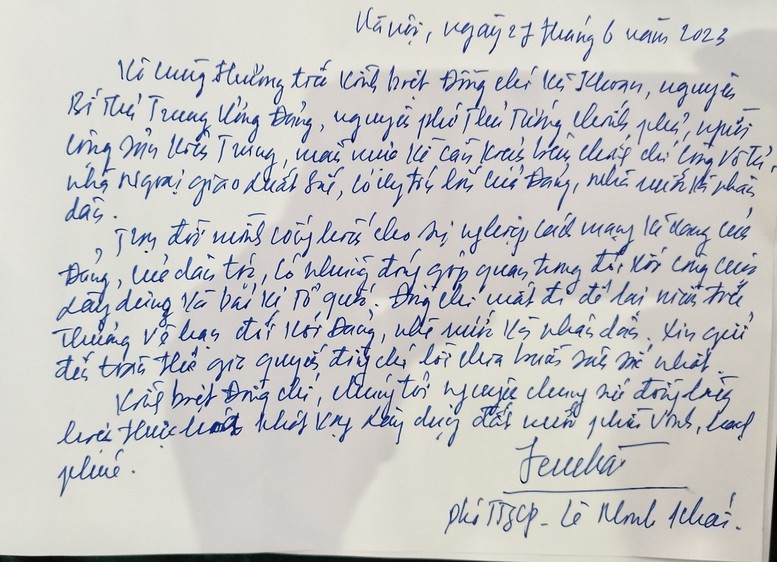 Hà Nội, ngày 27 tháng 6 năm 2023
Vô cùng thương tiếc kính biệt Đồng chí Vũ Khoan, nguyên
Bí thư Trung ương Đảng, nguyên phó Thủ Tướng chính phủ, người
cộng sản kiên Trung, mẫu mực về cần kiệm liêm chính chí công Vô Tư,
nhà ngoại giao xuất sắc, có uy tín lớn của Đảng, nhà nước và nhân
dân.
Trọn đời mình cống hiến cho sự nghiệp cách mạng vẻ vang của
Đảng, của dân tộc, có những đóng góp quan trọng đối với công cuộc
xây dựng và bảo vệ Tổ quốc. Đồng chí mất đi để lại niềm tiếc
Thương vô hạn đối với Đảng, nhà nước và nhân dân. Xin gửi
đến toàn thể gia quyến đồng chí lời chia buồn sâu sắc nhất.
Kính biệt Đồng chí, chúng tôi nguyện chung sức đồng lòng
hoàn nhất xây dựng đất nước phồn vinh, hạnh
phúc.
phó TTgCP - Lê Minh Khái.